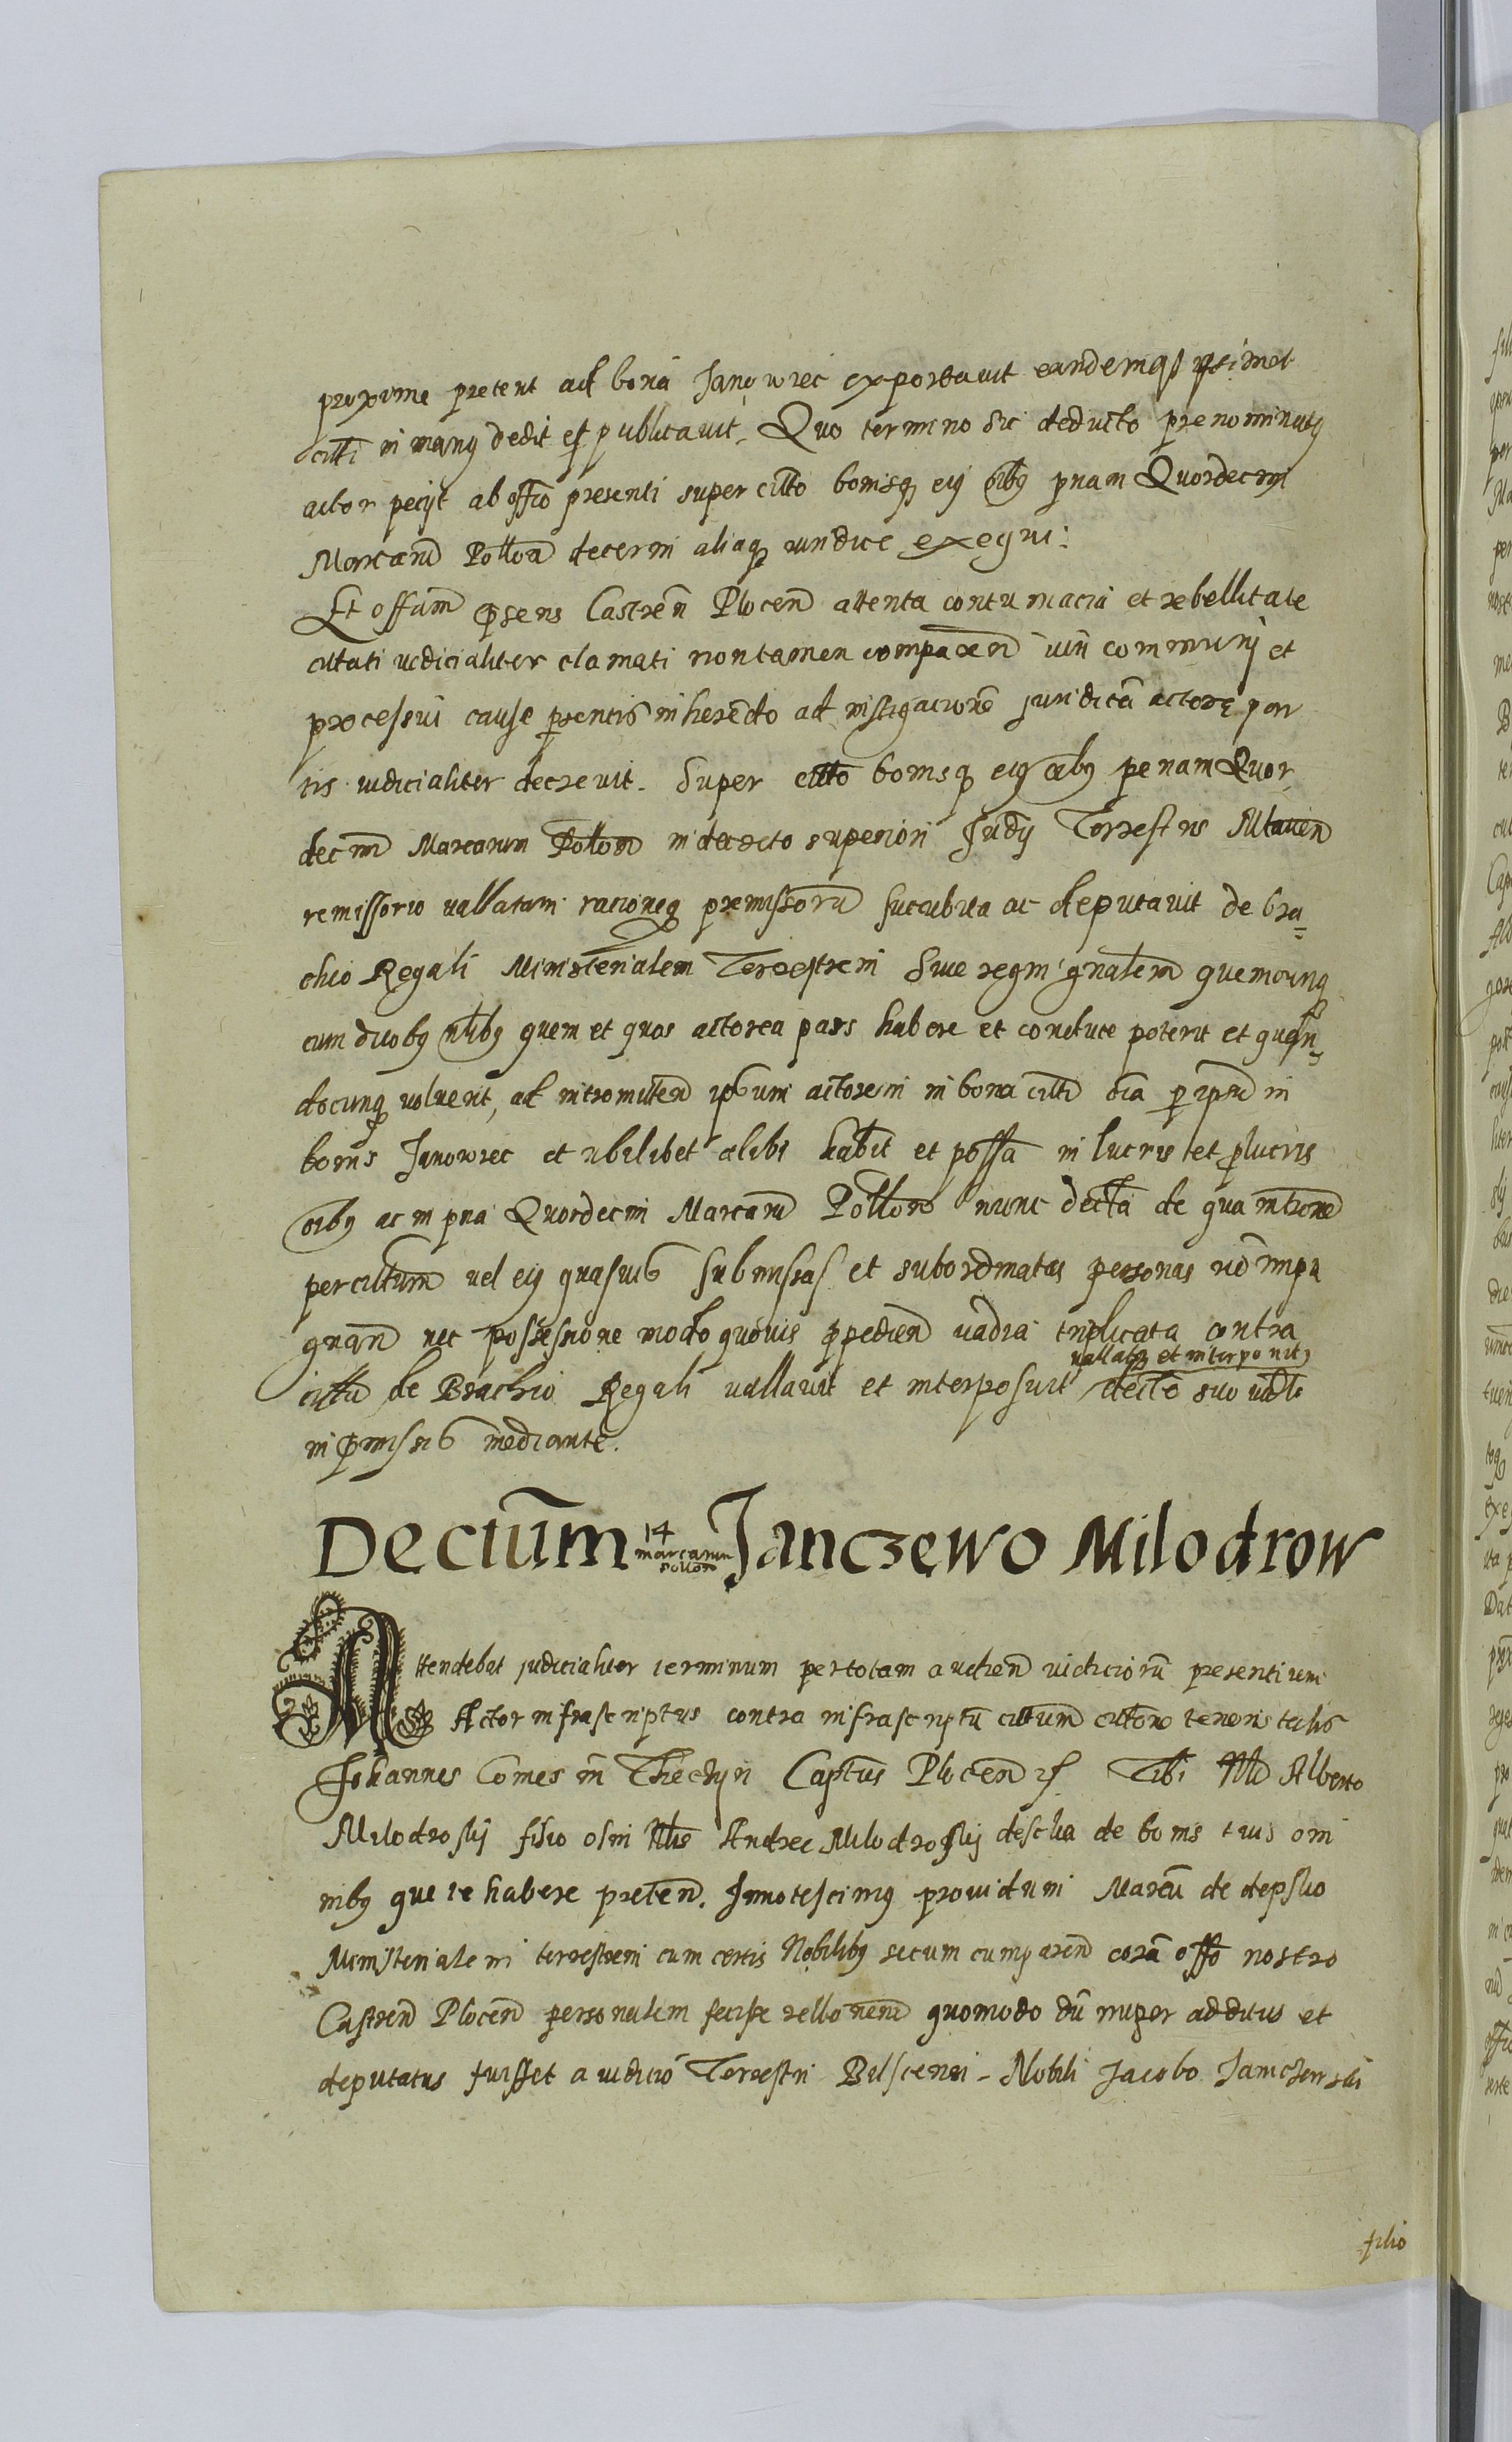 proxime preterit ad bona Janowiec exportavit eandemq ipsimet
citti in manq dedit et publicavit. Quo termino sic deducto prenominatq
actor pecijt ab offio presenti super citto bonisq eiq oibq pnam Quordecim
Marcarũ Polloa decerni aliaq iuridice exequi:
Et offium psens Castren Plocen attenta contumacia et rebellitate
citati iudicialiter clamati non tamen comparen iuri communi et
processui cause prentis inherendo ad instigacionẽ juridicã actoree par
tis iudicialiter decrevit. Super citto bonisq eiq oibq penam Quor
decim Marcarum Pollon in decreto superiori Judij Terrestris Mlavien
remissorio vallatam racioneq premissorũ succubita ac deputavit de bra=
chio Regali Ministerialem Terrestrem sive regni gnalem quemcunq
cum duobq nlibq quem et quos actorea pars habere et conducere poterit et quan,
docunq voluerit, ad intromitten ipsum actorem in bona citti oia p ipsũ in
bonis Janowiec et ubilibet alibi habit et possa in lucris et plucris
oibq ac in pna Quordecim Marcarũ Pollon nunc decta de qua introne
per cittum vel eiq quasvis submissas et subordinatas personas nõ impu
gnan nec possessione modo quovis ppedien vadia triplicata contra
cittũ de Brachio Regali vallavit et interposuit decto suo
vallatq et interponitq
in pmissis mediante.
Dectum 14 marcarum Pollon Janczewo Milodrow
Attendebat judicialiter terminum per totam audien iudiciorũ presentium
Actor infrascriptus contra infrascriptũ cittum cittone tenoris talis
Johannes Comes in Theczyn Capitus Plocen rf. Tibi Nli Alberto
Milodroskij filio olim Nlis Andree Milodroskij de bonis tuis omi
nibq que te habere preten. Innotescimq providum Marcũ de
Ministerialem terrestrem cum certis Nobilibq secum cumparen corã offo nostro
Castren Plocen personalem fecisse rellonem quomodo dũ nuper additus et
deputatus fuisset a iudicio Terrestri Bilscensi - Nobili Jacobo Janczewski
filio